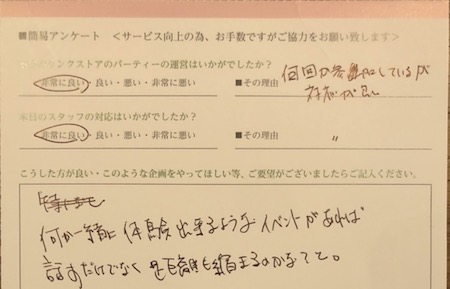 ■簡易アンケート ＜サービス向上の為、お手数ですがご協力をお願い致します＞
ンクストアのパーティーの運営はいかがでしたか？
非常に良い・良い・悪い・非常に悪い ■その理由 何回か参加しているが
対応が良い
本日のスタッフの対応はいかがでしたか？
非常に良い・良い・悪い・非常に悪い ■その理由 〃
こうした方が良い・このような企画をやってほしい等、ご要望がございましたらご記入ください。
何か一緒に体験出来るようなイベントがあれば
話すだけでなく距離も縮まるのかなて。